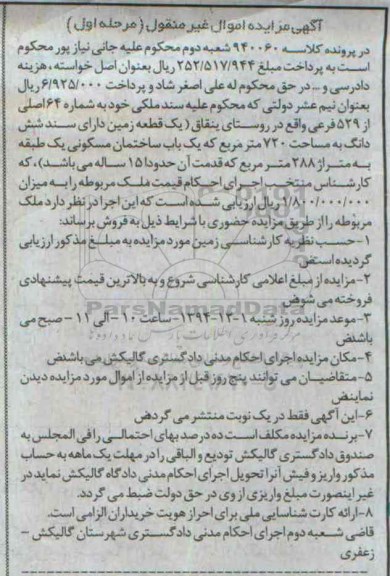 آگهی مزایده اموال غیر منقول (مرحله اول)
در پرونده کلاسه ۹۴۰۰۶۰ شعبه دوم محکوم علیه جانی نیاز پور محکوم
است به پرداخت مبلغ ۲۵۲/۵۱۷/۹۴۴ ریال بعنوان اصل خواسته، هزینه
دادرسی و ... در حق محکوم له علی اصغر شاد و پرداخت ۶/۹۲۵/۰۰۰ ریال
بعنوان نیم عشر دولتی که محکوم علیه سند ملکی خود به شماره ۶۴ اصلی
از ۵۲۹ فرعی واقع در روستای ینقاق (یک قطعه زمین دارای سند شش
دانگ به مساحت ۷۲۰ متر مربع که یک باب ساختمان مسکونی یک طبقه
به متراژ ۲۸۸ متر مربع که قدمت آن حدودا ۱۵ ساله می باشد)، که
کارشناس منتخب اجرای احکام قیمت ملک مربوطه را به میزان
۱/۸۰۰/۰۰۰/۰۰۰ ریال ارزیابی شده است که این اجرا در نظر دارد ملک
مربوطه را از طریق مزایده حضوری با شرایط ذیل به فروش برساند:
۱- حسب نظریه کارشناسی زمین مورد مزایده به مبلغ مذکور ارزیابی
گردیده استض
۲- مزایده از مبلغ اعلامی کارشناسی شروع و به بالاترین قیمت پیشنهادی
فروخته می شوض
۳- موعد مزایده روز شنبه ۱-۱۲-۱۳۹۴- ساعت ۱۰ - الی ۱۱ - صبح می
باشدض
۴- مکان مزایده اجرای احکام مدنی دادگستری گالیکش می باشدض
۵- متقاضیان می توانند پنج روز قبل از مزایده از اموال مورد مزایده دیدن
نماینض
۶- این آگهی فقط در یک نوبت منتشر می گردض
۷- برنده مزایده مکلف است ده درصد بهای احتمالی را فی المجلس به
صندوق دادگستری گالیکش تودیع و الباقی را در مهلت یک ماهه به حساب
مذکور واریز و فیش آنرا تحویل اجرای احکام مدنی دادگاه گالیکش نماید در
غیر اینصورت مبلغ واریزی از وی در حق دولت ضبط می گردد.
۸- ارائه کارت شناسایی ملی برای احراز هویت خریداران الزامی است.
قاضی شعبه دوم اجرای احکام مدنی دادگستری شهرستان گالیکش -
زعفری
ParsNamadData